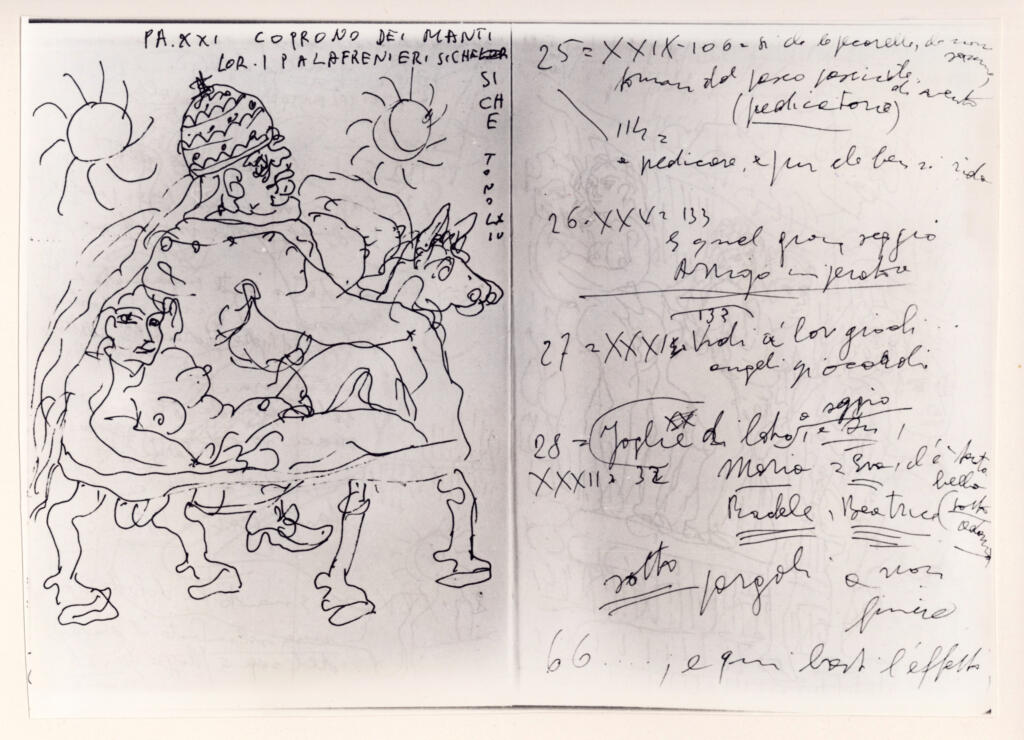 PA.XXI COPRONO DEI MANTI
LOR.I PALAFRENIERI SICHE
SI
CH
E
T
O
N
O
LXIV
25 = XXIX-106 = si de le pecorelle, che non
sanno,
tornan dal pasco pasciute di vento
(predicatore)
114 =
a predicare, e pur che ben si rida
26. XXX = 133
E quel gran seggio
Arrigo imperatore
133
27 = XXXI = Vidi a lor giochi...
angeli
28 =
XXXII = 32
Maria = Eva, ch'è tanto
bella
Rachele, Beatrice (sotto
sotto pargoli a non
finire
66 ...., e qui basti l'effetto,